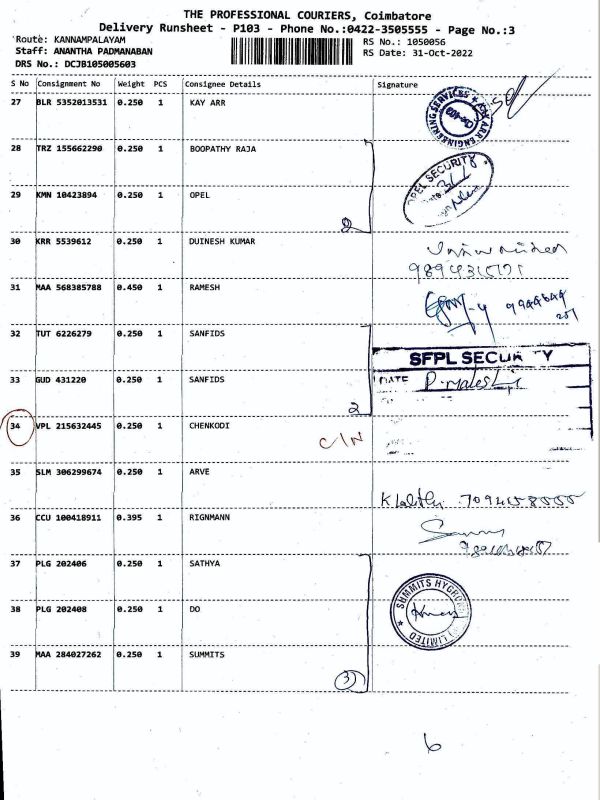 THE PROFESSIONAL COURIERS, Coimbatore
Delivery Runsheet - P103 - Phone No.:0422-3505555 - Page No.:3
Route: KANNAMPALAYAM
RS No.: 1050056
Staff: ANANTHA PADMANABAN
RS Date: 31-Oct-2022
DRS No.: DCJB105005603
S No Consignment No Weight PCS Consignee Details Signature
27 BLR 5352013531 0.250 1 KAY ARR
KAY ARR ENGINEERING SERVICES
28 TRZ 155662290 0.250 1 BOOPATHY RAJA
OPEL SECURITY
29 KMN 10423894 0.250 1 OPEL
2
30 KRR 5539612 0.250 1 DUINESH KUMAR
31 MAA 568385788 0.450 1 RAMESH
32 TUT 6226279 0.250 1 SANFIDS
SFPL SECURITY
33 GUD 431220 0.250 1 SANFIDS
DATE
2
34 VPL 215632445 0.250 1 CHENKODI
C/N
35 SLM 306299674 0.250 1 ARVE
36 CCU 100418911 0.395 1 RIGNMANN
37 PLG 202406 0.250 1 SATHYA
38 PLG 202408 0.250 1 DO
SUMMITS HYGRO LIMITED
39 MAA 284027262 0.250 1 SUMMITS
3
6